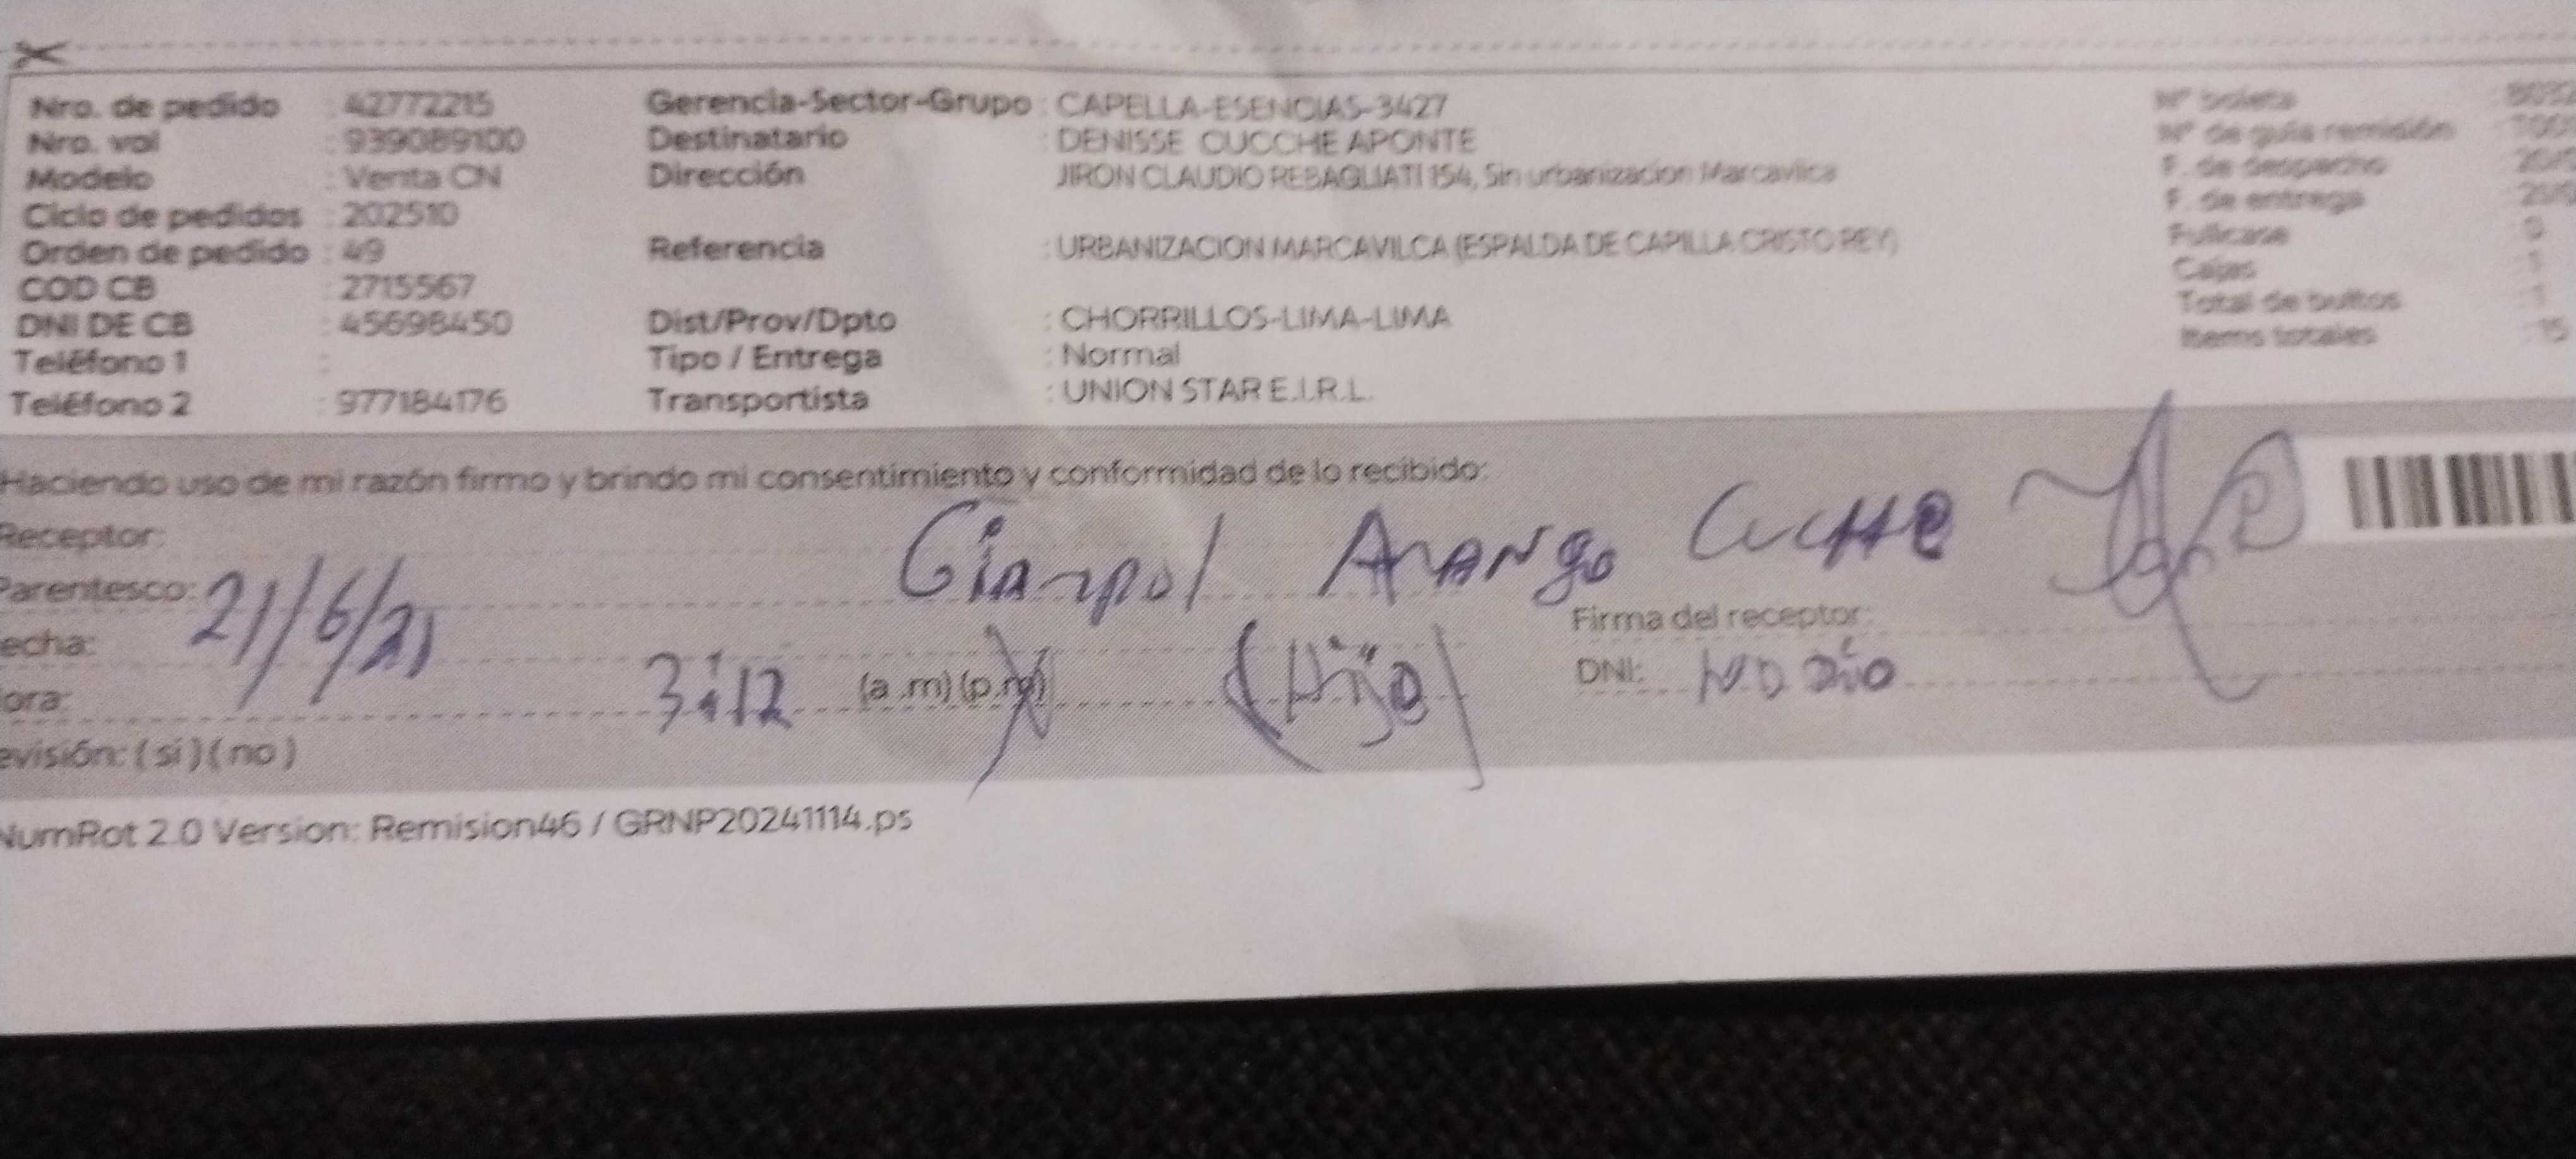 Nro. de pedido : 42772215
Nro. val : 939089100
Modelo : Venta CN
Ciclo de pedidos : 202510
Orden de pedido : 49
COD CB : 2715567
DNI DE CB : 45698450
Teléfono 1 :
Teléfono 2 : 977184176
Gerencia-Sector-Grupo : CAPELLA-ESENCIAS-3427
Destinatario : DENISSE CUCCHE APONTE
Dirección : JIRON CLAUDIO REBAGLIATI 154, Sin urbanizacion Marcavilca
Referencia : URBANIZACION MARCAVILCA (ESPALDA DE CAPILLA CRISTO REY)
Dist/Prov/Dpto : CHORRILLOS-LIMA-LIMA
Tipo / Entrega : Normal
Transportista : UNION STAR E.I.R.L.
Nº boleta
Nº de guía remisión
F. de despacho
F. de entrega
Fullcase : 0
Cajas : 1
Total de bultos : 1
Items totales : 15
Haciendo uso de mi razón firmo y brindo mi consentimiento y conformidad de lo recibido:
Receptor: Gianpol Arango Cucche
Parentesco:
echa: 21/6/21
ora: 3:12 (a.m) (p.m) (Hijo)
Firma del receptor:
DNI: NO DIO
evisión: ( si ) ( no )
NumRot 2.0 Version: Remision46 / GRNP20241114.ps